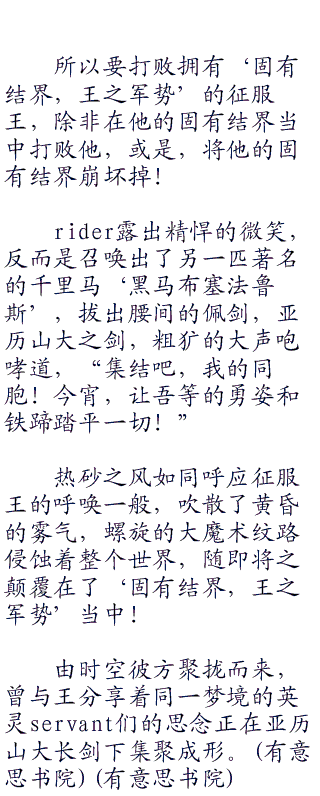 所以要打败拥有‘固有
结界，王之军势’的征服
王，除非在他的固有结界当
中打败他，或是，将他的固
有结界崩坏掉！
rider露出精悍的微笑，
反而是召唤出了另一匹著名
的千里马‘黑马布塞法鲁
斯’，拔出腰间的佩剑，亚
历山大之剑，粗犷的大声咆
哮道，“集结吧，我的同
胞！今宵，让吾等的勇姿和
铁蹄踏平一切！”
热砂之风如同呼应征服
王的呼唤一般，吹散了黄昏
的雾气，螺旋的大魔术纹路
侵蚀着整个世界，随即将之
颠覆在了‘固有结界，王之
军势’当中！
由时空彼方聚拢而来，
曾与王分享着同一梦境的英
灵servant们的思念正在亚历
山大长剑下集聚成形。(有意
思书院)(有意思书院)